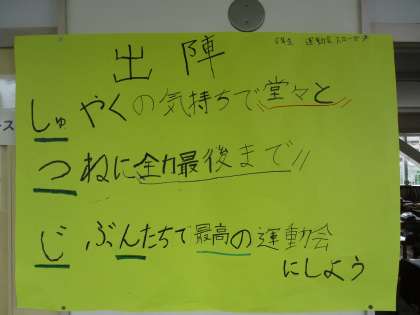 6年生 運動会スローガン
出陣
しゅやくの気持ちで堂々と
つねに全力最後まで
じぶんたちで最高の運動会
にしよう